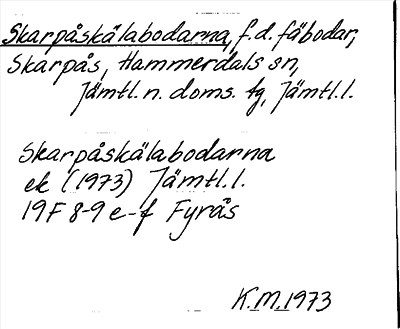 Skarpåskälabodarna, f.d. fäbodar,
Skarpås, Hammerdals sn,
Jämtl. n. doms. tg, Jämtl.l.
Skarpåskälabodarna
ek (1973) Jämtl.l.
19F 8-9 e-f Fyrås
K.M. 1973